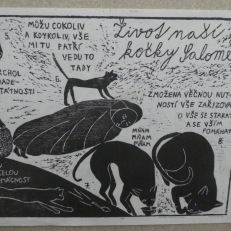 Život naší
kočky Salome
MŮŽU COKOLIV
A KDYKOLIV, VŠE
MI TU PATŘÍ
VEDU TO
TADY
ZMOŽENA VĚČNOU NUT-
NOSTÍ VŠE ZAŘIZOVA
O VŠE SE STARAT
A SE VŠÍM
POMÁHAT
MŇAM
MŇAM
MŇAM